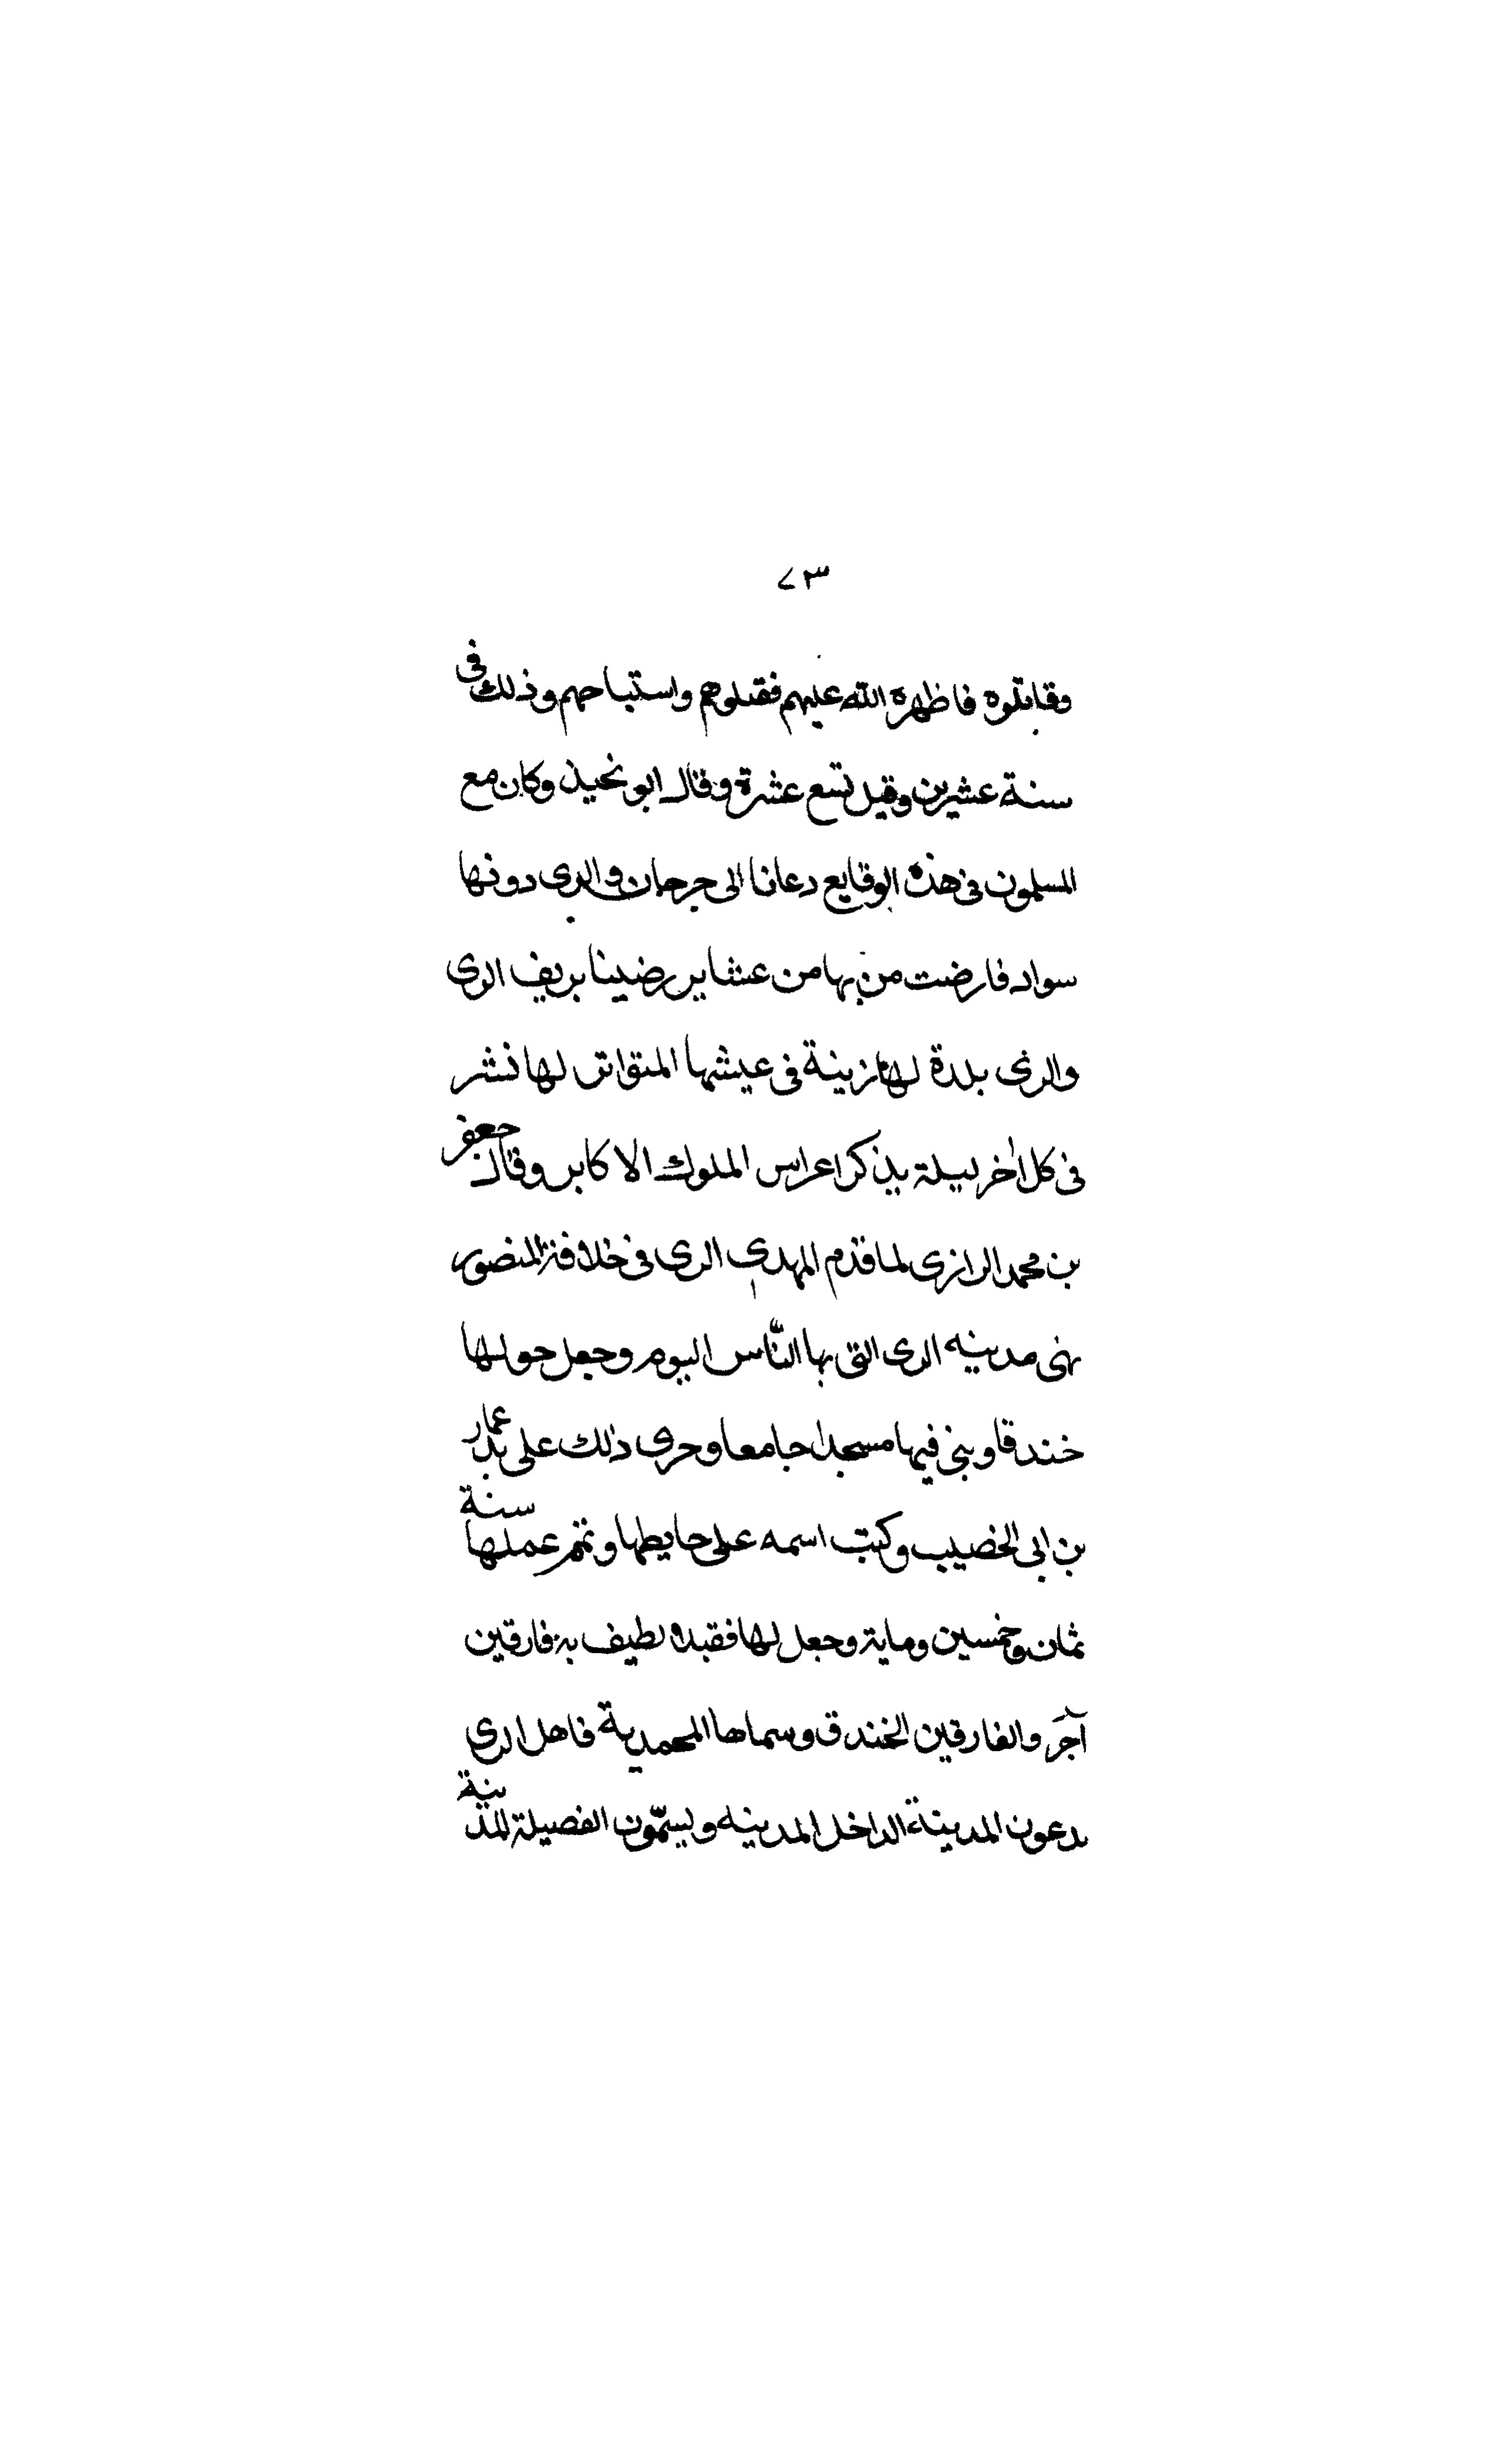 ٧٣
وقاتلوه فاظهره الله عليهم فقتلوهم واستباحهم وذلك فى
سنة عشرين وقيل تسع عشرة وقال ابو نحيذ وكان مع
المسلمون فى هذه الوقايع دعانا الى جرجان والرى دونها
سواد فارضت من بها من عشاير رضينا بريف الرى
والرى بلدة لها زينة فى عيشها المتواتر لها نشر
فى كل اخر ليلة يذكر اعراس الملوك الاكابر وقال جعفر
بن محمد الرازى لما قدم المهدى الرى فى خلافة المنصور
بنى مدينه الرى التى بها النّاس اليوم وجعل حولها
خندقا وبنى فيها مسجدا جامعا وجرى ذلك على يد عمار
بن ابى الخصيب وكتب اسمه على حايطها وتم عملها سنة
ثمان وخمسين وماية وجعل لها فقبلا يطيف به فارقين
آجر والفارقين الخندق وسماها المحمدية فاهل الرى
يدعون المدينة الداخل المدينه ويسمّون الفصيلة المدينة